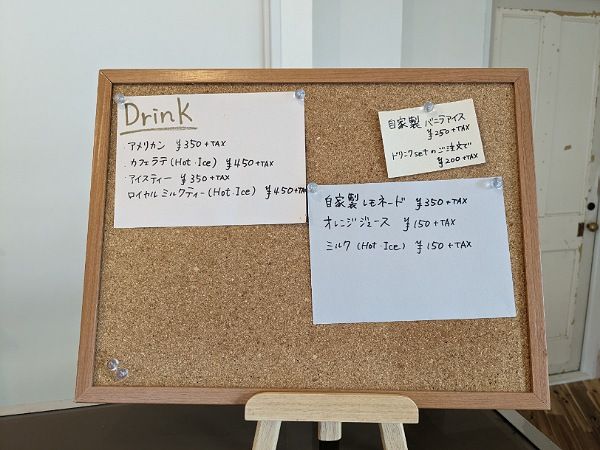 Drink
・アメリカン ¥350+TAX
・カフェラテ(Hot・Ice) ¥450+TAX
・アイスティー ¥350+TAX
ロイヤルミルクティー(Hot・Ice) ¥450+TAX
自家製 バニラアイス
¥250+TAX
ドリンクsetのご注文で
¥200+TAX
自家製レモネード ¥350+TAX
オレンジジュース ¥150+TAX
ミルク(Hot・Ice) ¥150+TAX